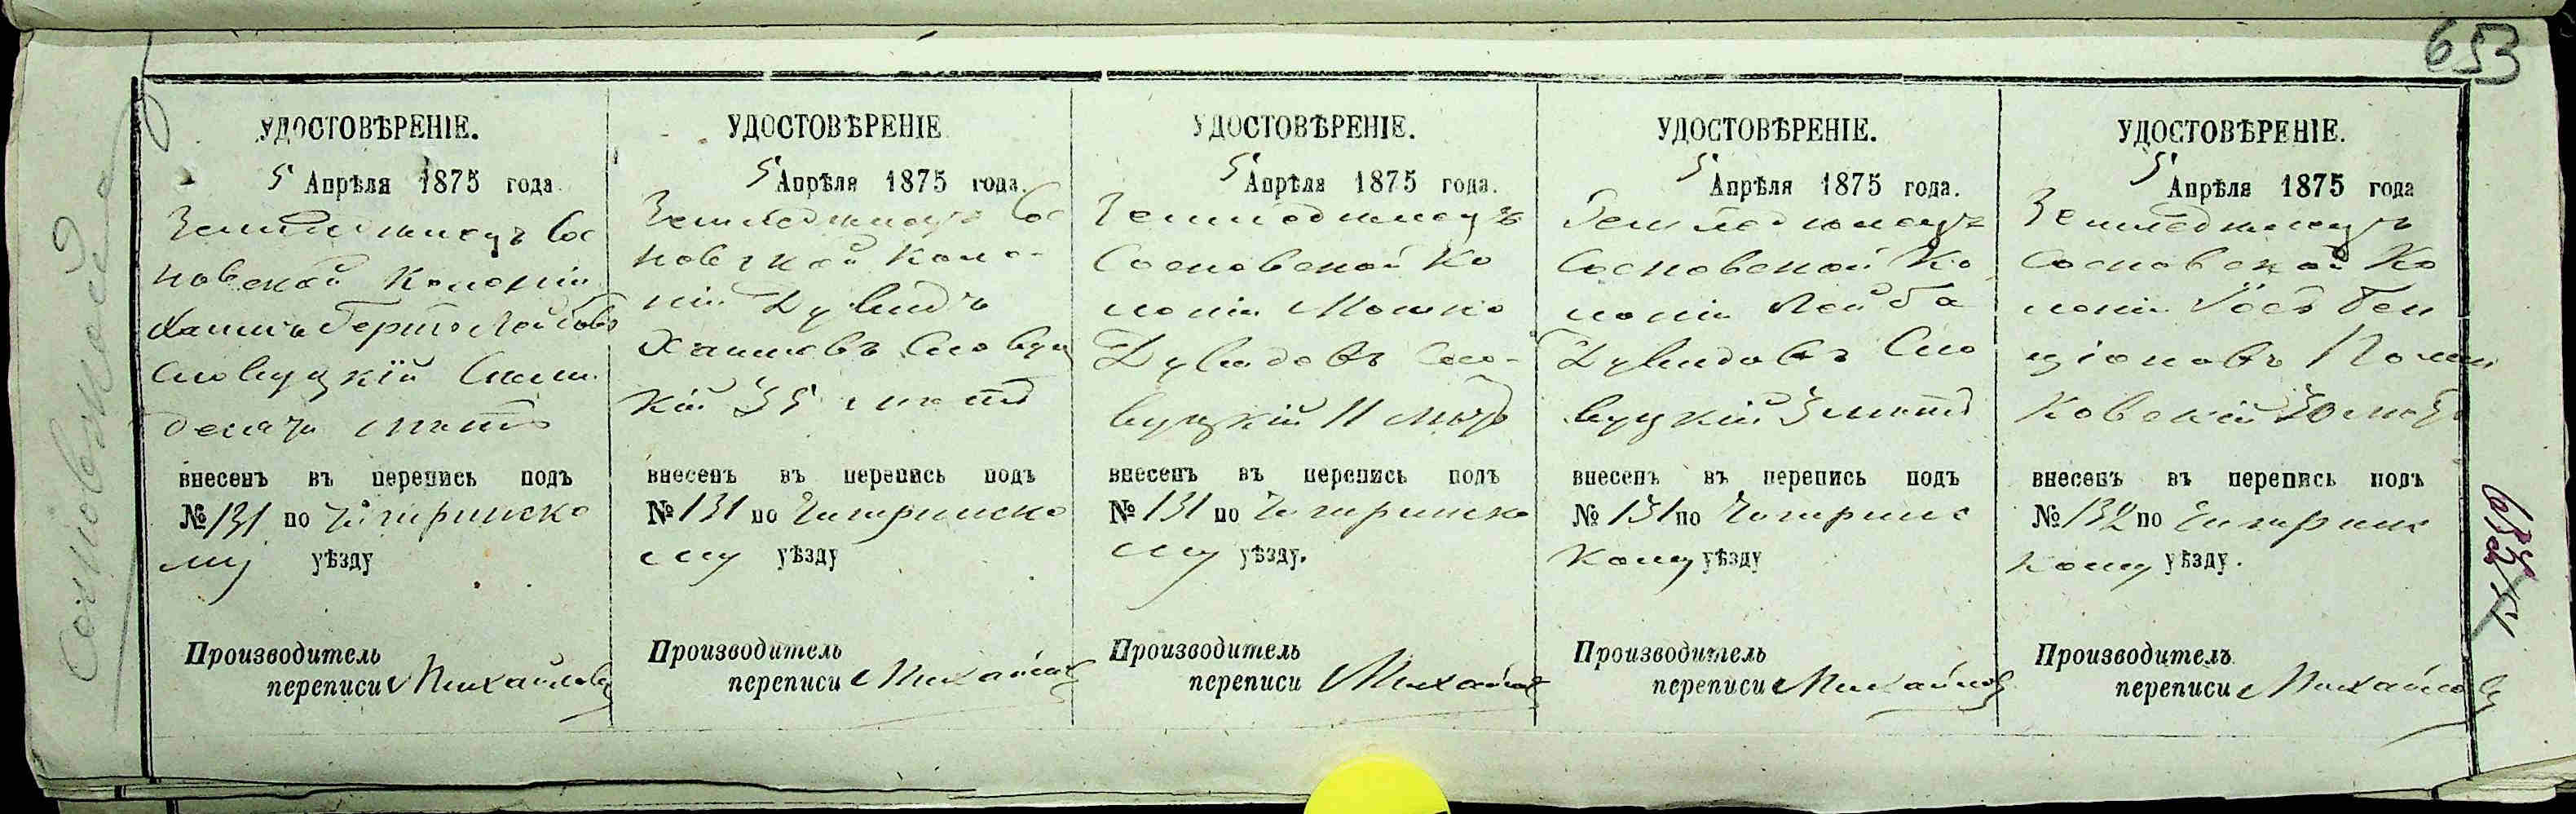 653
УДОСТОВѢРЕНІЕ.
5 Апрѣля 1875 года
Земледѣлецъ Сос
новской Колоніи
Словуцкій
десяти лѣтъ
внесенъ въ перепись подъ
№ 131 по Чигиринско
му уѣзду
Производитель
переписи Михайловъ
УДОСТОВѢРЕНІЕ
5 Апрѣля 1875 года.
Земледѣлецъ Сос
новской Коло-
ніи Дувидъ
Хаимовъ Словуц
кій 35 лѣтъ
внесенъ въ перепись подъ
№ 131 по Чигиринско
му уѣзду
Производитель
переписи Михайловъ
УДОСТОВѢРЕНІЕ.
5 Апрѣля 1875 года.
Земледѣлецъ
Сосновской Ко
лоніи Мошко
Дувидовъ Сло-
вуцкій 11 лѣтъ
внесенъ въ перепись подъ
№ 131 по Чигиринско
му уѣзду.
Производитель
переписи Михайловъ
УДОСТОВѢРЕНІЕ.
5 Апрѣля 1875 года.
Земледѣлецъ
Сосновской Ко
лоніи Лейба
Дувидовъ Сло
вуцкій 3 лѣтъ
внесенъ въ перепись подъ
№ 131 по Чигиринс
кому уѣзду
Производитель
переписи Михайловъ
УДОСТОВѢРЕНІЕ.
5 Апрѣля 1875 года
Земледѣлецъ
Сосновской Ко
лоніи Іосъ Бен
ціоновъ
ковскій 30 лѣтъ
внесенъ въ перепись подъ
№ 132 по Чигиринс
кому уѣзду.
Производитель
переписи Михайловъ